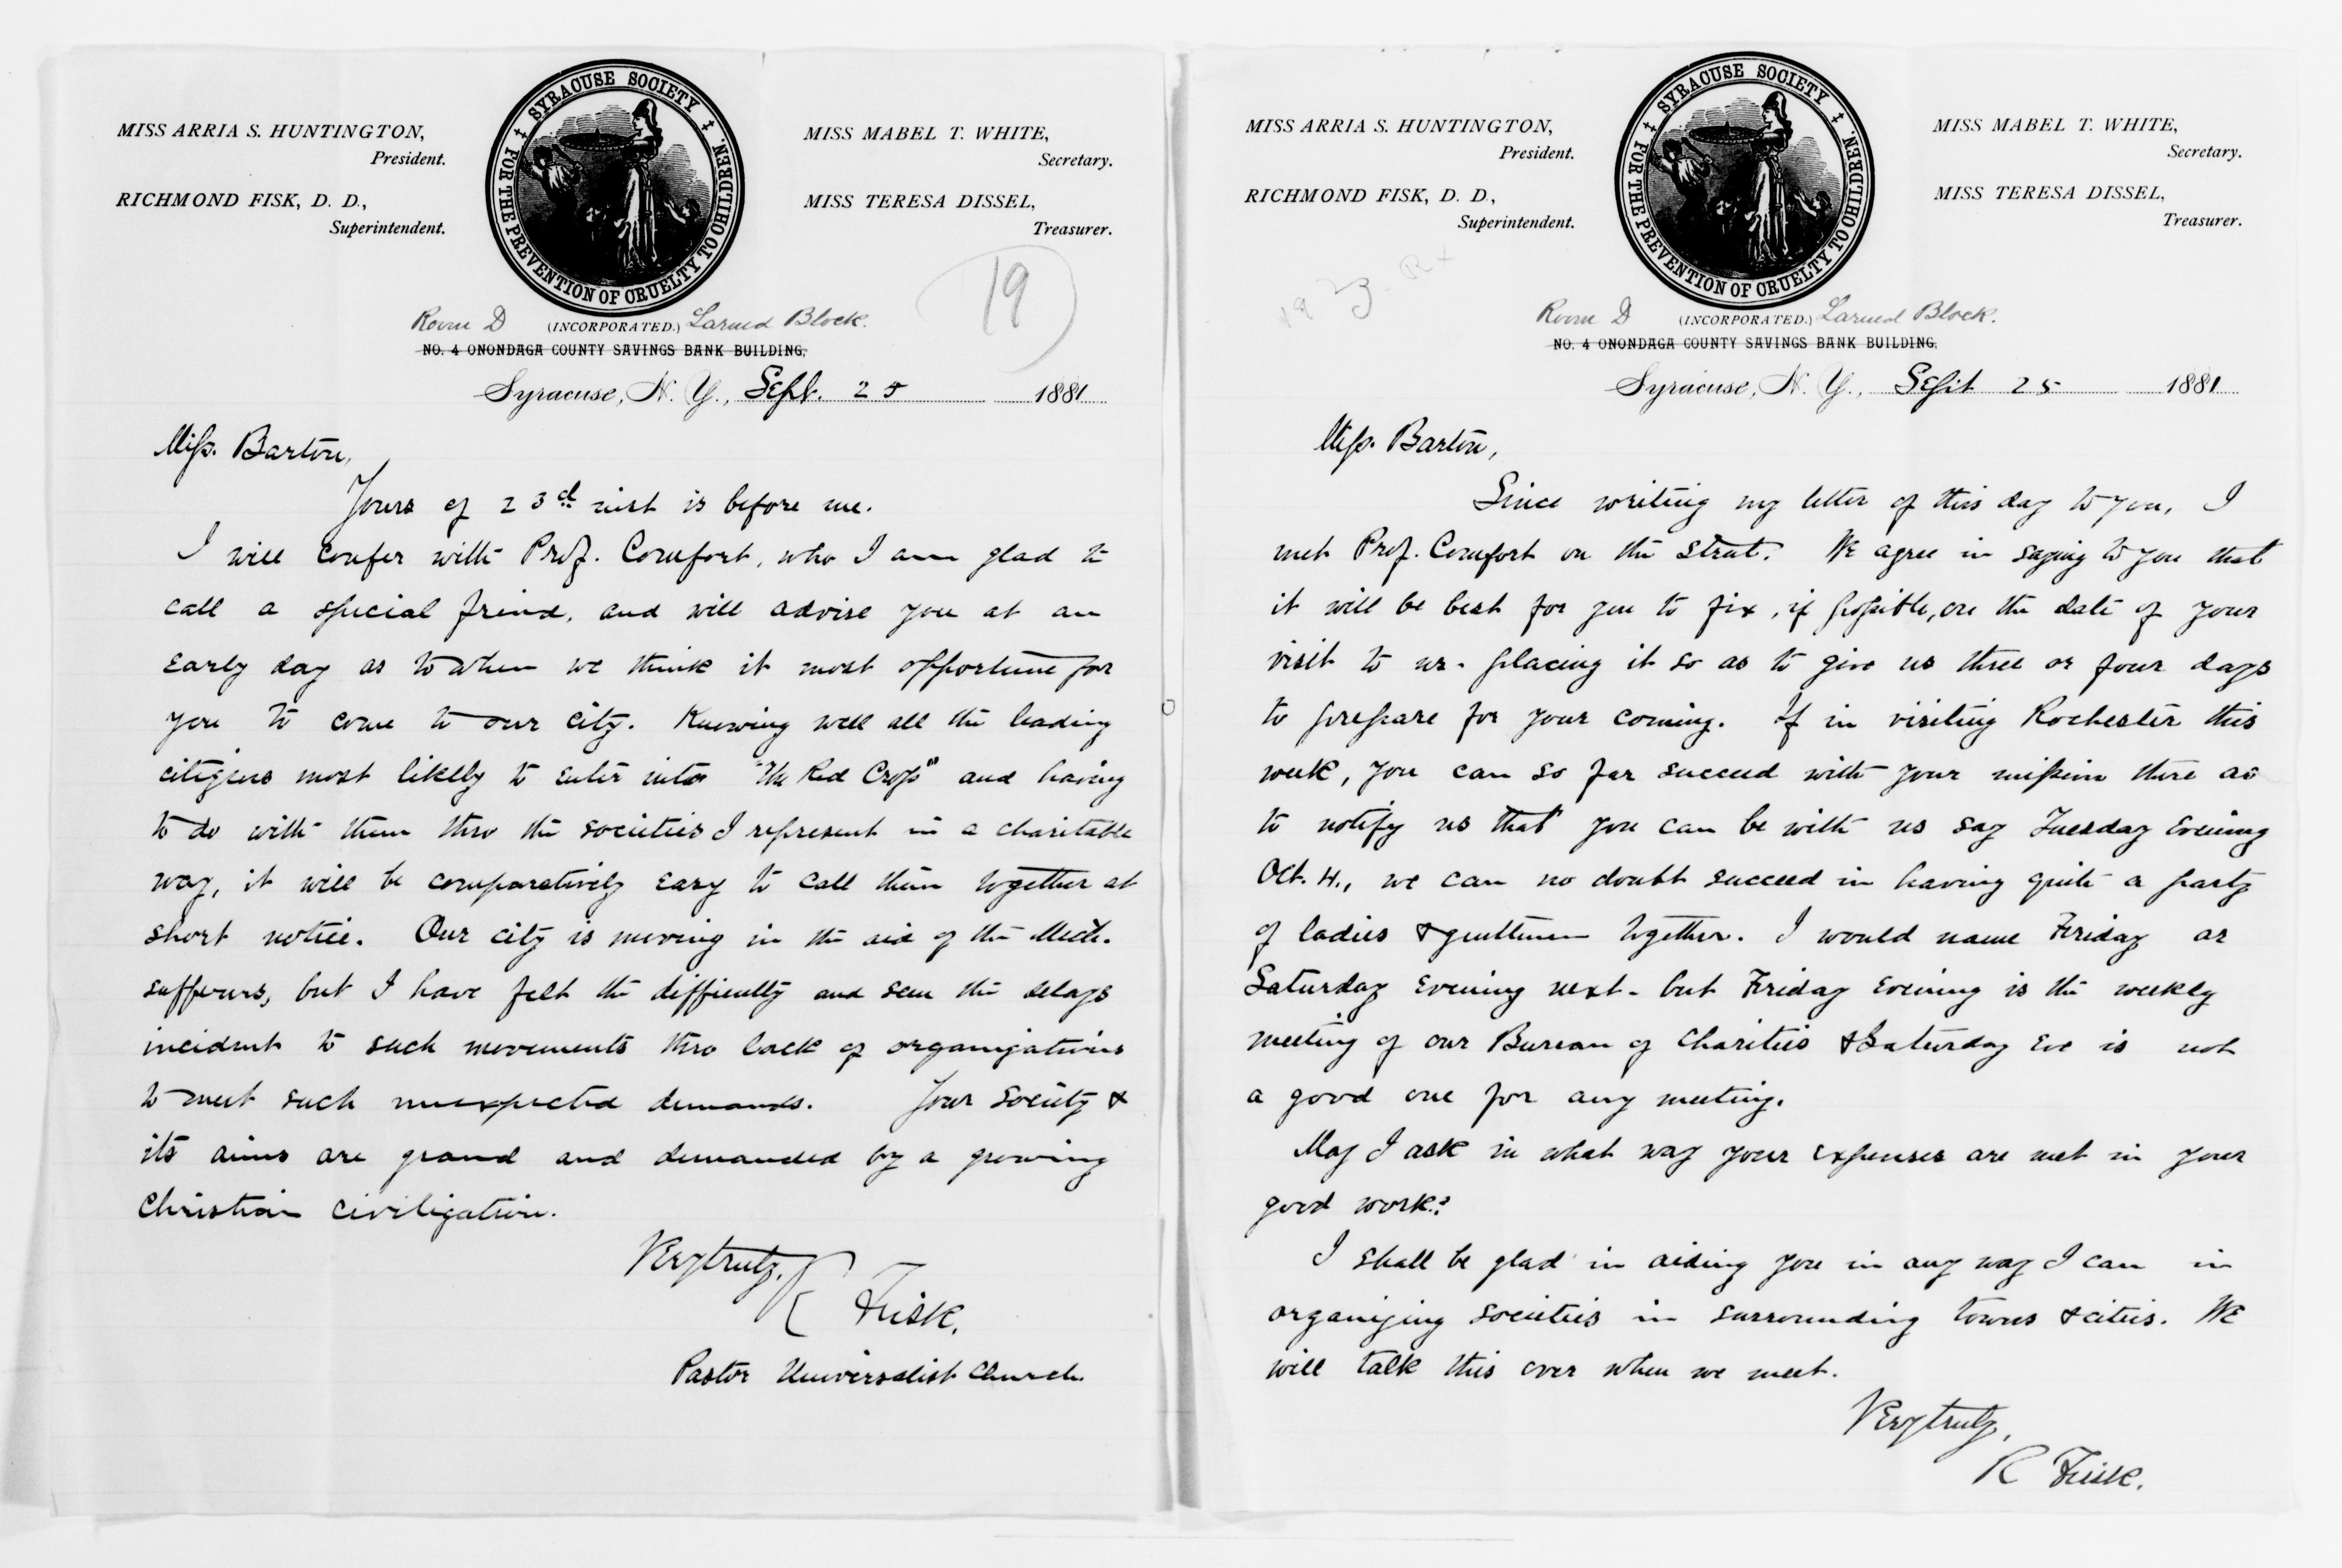 MISS ARRIA S. HUNTINGTON,
President.
RICHMOND FISK, D. D.,
Superintendent.
SYRACUSE SOCIETY
FOR THE PREVENTION OF CRUELTY TO CHILDREN.
MISS MABEL T. WHITE,
Secretary.
MISS TERESA DISSEL,
Treasurer.
19
Room D (INCORPORATED.) Larned Block.
NO. 4 ONONDAGA COUNTY SAVINGS BANK BUILDING,
Syracuse, N. Y., Sept. 25 1881
Miss. Barton,
Yours of 23d inst is before me.
I will confer with Prof. Comfort, who I am glad to
call a special friend, and will advise you at an
early day as to when we think it most opportune for
you to come to our city. Knowing well all the leading
citizens most likely to enter into "The Red Cross" and having
to do with them thro the societies I represent in a charitable
way, it will be comparatively easy to call them together at
short notice. Our city is moving in the aid of the Mich.
sufferers, but I have felt the difficulty and seen the delays
incident to such movements thro lack of organizations
to meet such unexpected demands. Your Society &
its aims are grand and demanded by a growing
Christian civilization.
Very truly,
R Fisk.
Pastor Universalist Church.
MISS ARRIA S. HUNTINGTON,
President.
RICHMOND FISK, D. D.,
Superintendent.
SYRACUSE SOCIETY
FOR THE PREVENTION OF CRUELTY TO CHILDREN.
MISS MABEL T. WHITE,
Secretary.
MISS TERESA DISSEL,
Treasurer.
Room D (INCORPORATED.) Larned Block.
NO. 4 ONONDAGA COUNTY SAVINGS BANK BUILDING,
Syracuse, N. Y., Sept 25 1881
Miss. Barton,
Since writing my letter of this day to you, I
met Prof. Comfort on the street. We agree in saying to you that
it will be best for you to fix, if possible, on the date of your
visit to us - placing it so as to give us three or four days
to prepare for your coming. If in visiting Rochester this
week, you can so far succeed with your mission there as
to notify us that you can be with us say Tuesday Evening
Oct. 4., we can no doubt succeed in having quite a party
of ladies & gentlemen together. I would name Friday or
Saturday Evening next - but Friday Evening is the weekly
meeting of our Bureau of Charities & Saturday Eve is not
a good one for any meeting.
May I ask in what way your expenses are met in your
good work?
I shall be glad in aiding you in any way I can in
organizing societies in surrounding towns & cities. We
will talk this over when we meet.
Very truly,
R Fisk.